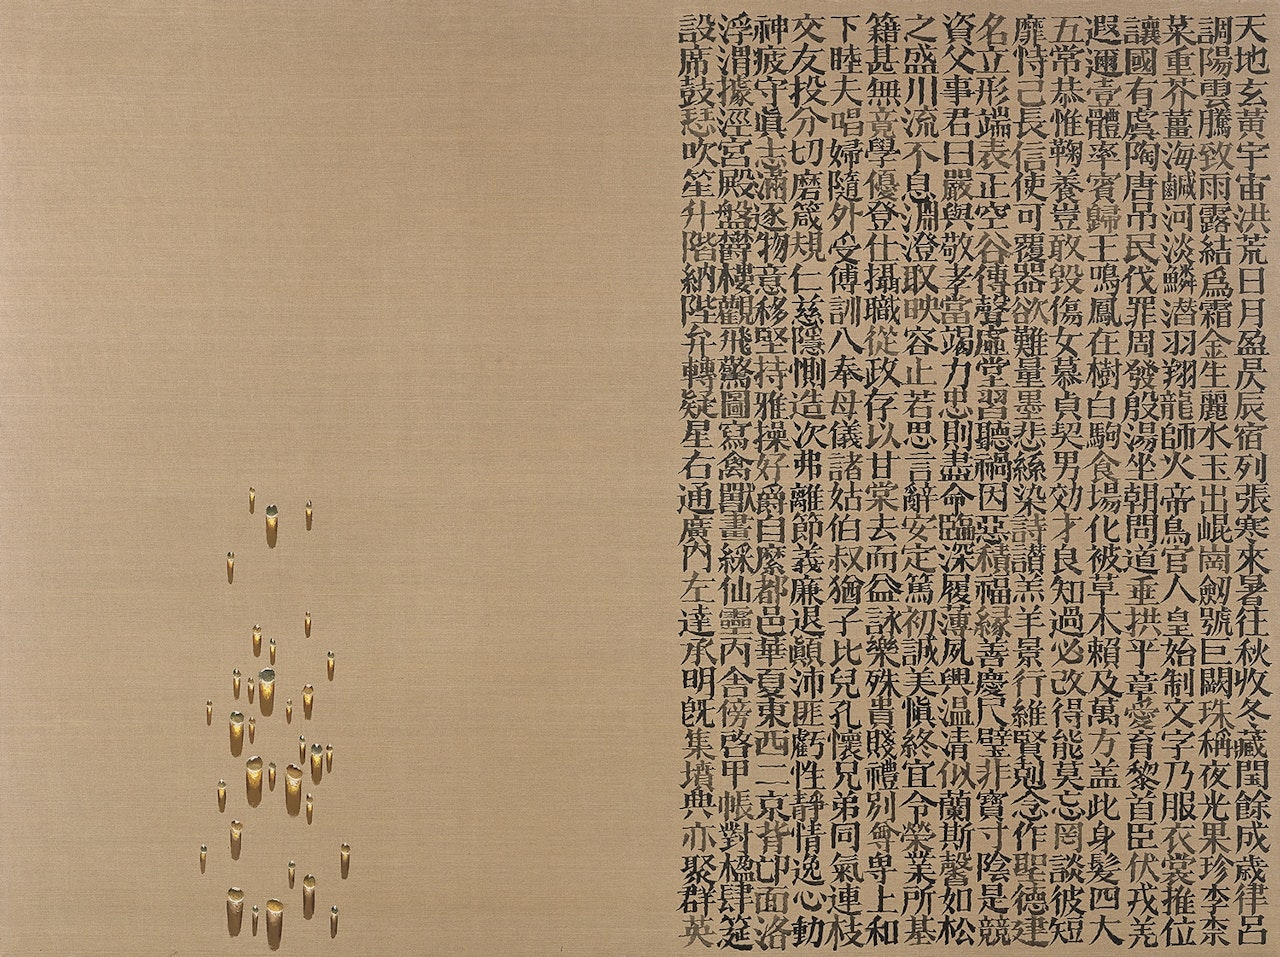 天地玄黃宇宙洪荒日月盈昃辰宿列張寒來暑往秋收冬藏閏餘成歳律呂
調陽雲騰致雨露結爲霜金生麗水玉出崐崗劒號巨闕珠稱夜光果珍李柰
菜重芥薑海鹹河淡鱗潜羽翔龍師火帝鳥官人皇始制文字乃服衣裳推位
讓國有虞陶唐吊民伐罪周發殷湯坐朝問道垂拱平章愛育黎首臣伏戎羌
遐邇壹體率賓歸王鳴鳳在樹白駒食場化被草木賴及萬方盖此身髮四大
五常恭惟鞠養豈敢毁傷女慕貞契男効才良知過必改得能莫忘罔談彼短
靡恃己長信使可覆器欲難量墨悲絲染詩讃羔羊景行維賢剋念作聖德建
名立形端表正空谷傳聲虛堂習聽禍因惡積福緣善慶尺璧非寶寸陰是競
資父事君曰嚴與敬孝當竭力忠則盡命臨深履薄夙興温凊似蘭斯馨如松
之盛川流不息淵澄取映容止若思言辭安定篤初誠美愼終宜令榮業所基
籍甚無竟學優登仕攝職從政存以甘棠去而益詠樂殊貴賤禮別尊卑上和
下睦夫唱婦隨外受傅訓入奉母儀諸姑伯叔猶子比兒孔懷兄弟同氣連枝
交友投分切磨箴規仁慈隱惻造次弗離節義廉退顚沛匪虧性靜情逸心動
神疲守眞志滿逐物意移堅持雅操好爵自縻都邑華夏東西二京背邙面洛
浮渭據涇宮殿盤鬱樓觀飛驚圖寫禽獸畫綵仙靈丙舍傍啓甲帳對楹肆筵
設席鼓瑟吹笙升階納陛弁轉疑星右通廣內左達承明旣集墳典亦聚群英